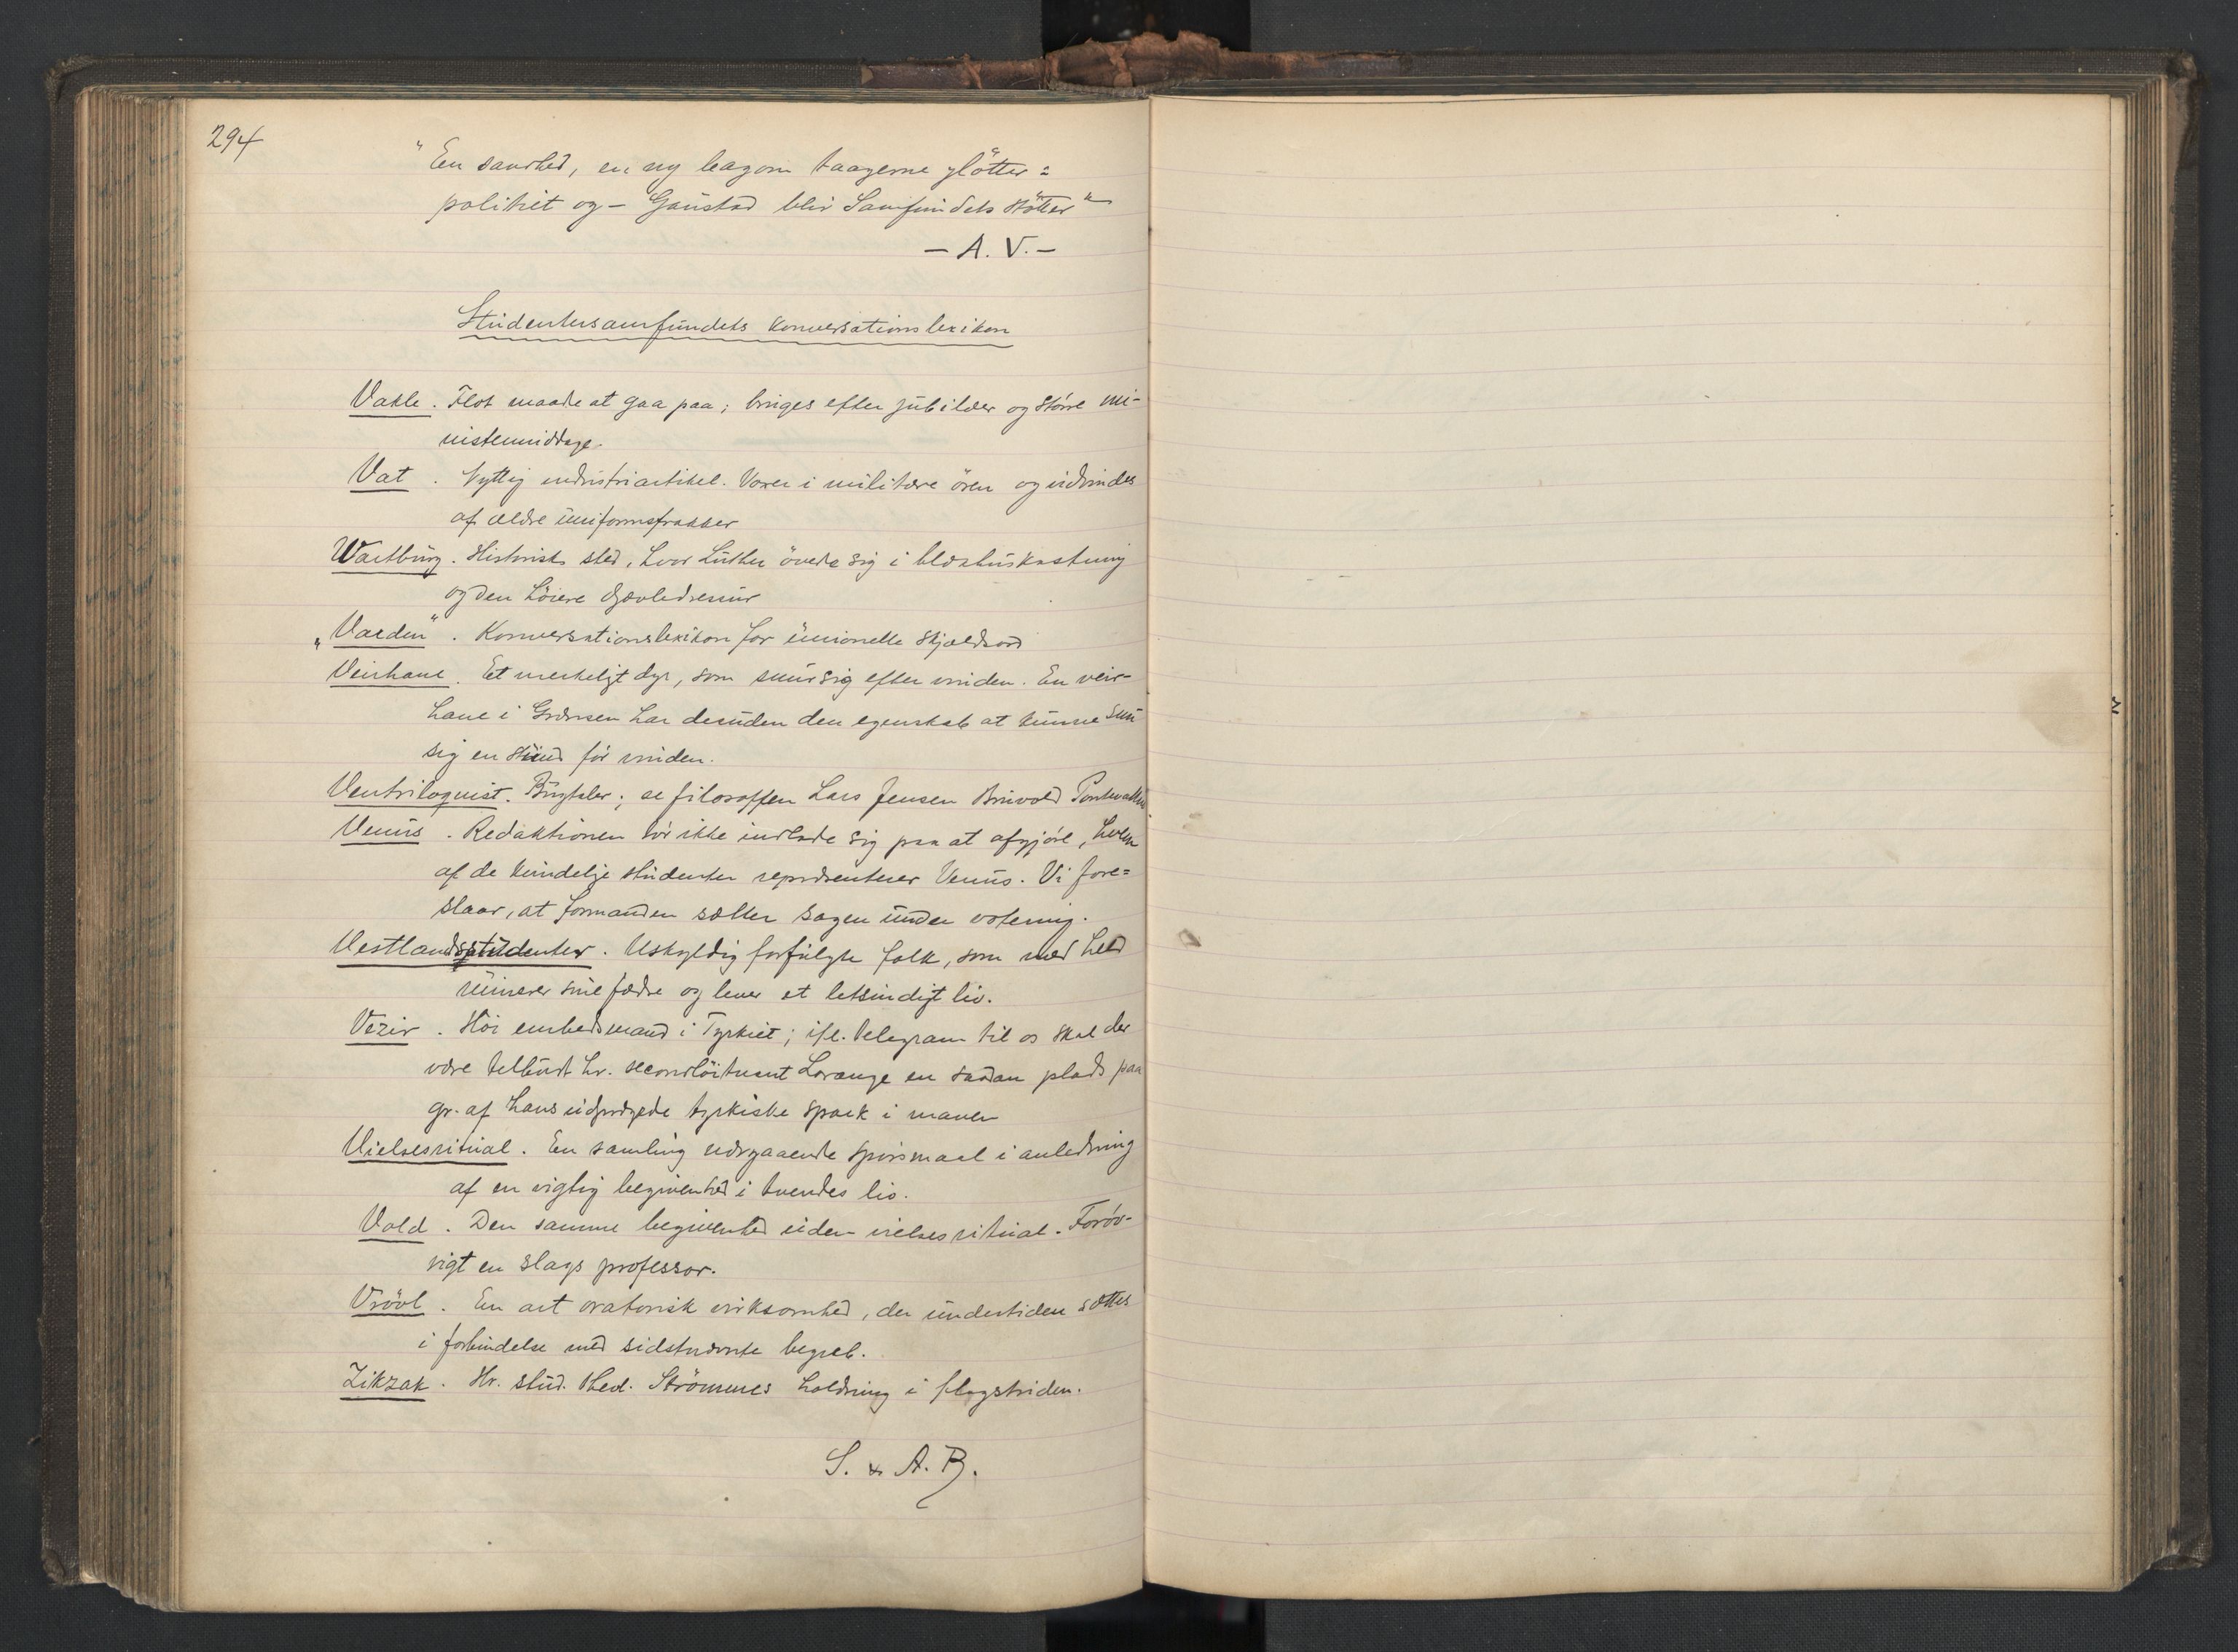 294
"En sandhed, en ny bagom taagerne glötter:
politiet og – Gaustad blir Samfundets støtter"
– A. V. –
Studentersamfundets konversationslexikon
Vakle. Flot maade at gaa paa; bruges efter jubilæer og større mi-
nistermiddage.
Vat. Nyttig industriartikel. Voxer i militære ören og vidindes
af ældre uniformsfrakker
Wartburg. Historisk sted, hvor Luther övede sig i blækhuskastning
og den höiere djævledressur
"Varden". Konversationslexikon for unionelle skjældsord
Veirhane. Et merkeligt dyr, som snur sig efter vinden. En veir-
hane i Grænsen har desuden den egenskab at kunne snu
sig en stund før vinden.
Ventriloquist. Bugtaler; se filosoffen Lars Jensen Brüvold
Venus. Redaktionen tör ikke indlade sig paa at afgjöre, hvem
af de kvindelige studenter repræsenterer Venus. Vi fore=
slaar, at formanden sætter sagen under votering.
Vestlandsstudenter. Uskyldig forfulgte folk, som med held
ruinerer sine fædre og lever et letsindigt liv.
Vezir. Höi embedsmand i Tyrkiet; ifl. telegram til os skal der
være tilbudt hr. secondlöitnant Lorange en saadan plads paa
gr. af hans udprægede tyrkiske spark i maven
Vielsesritual. En samling nærgaaende spörsmaal i anledning
af en vigtig begivenhed i tvendes liv.
Vold. Den samme begivenhed uden vielsesritual. Foröv-
rigt en slags professor.
Vrövl. En art oratorisk virksomhed, der undertiden sættes
i forbindelse med sidstnævnte begreb.
Zikzak. Hr. stud. theol. Strömmes holdning i flagstriden.
S. & A. B.